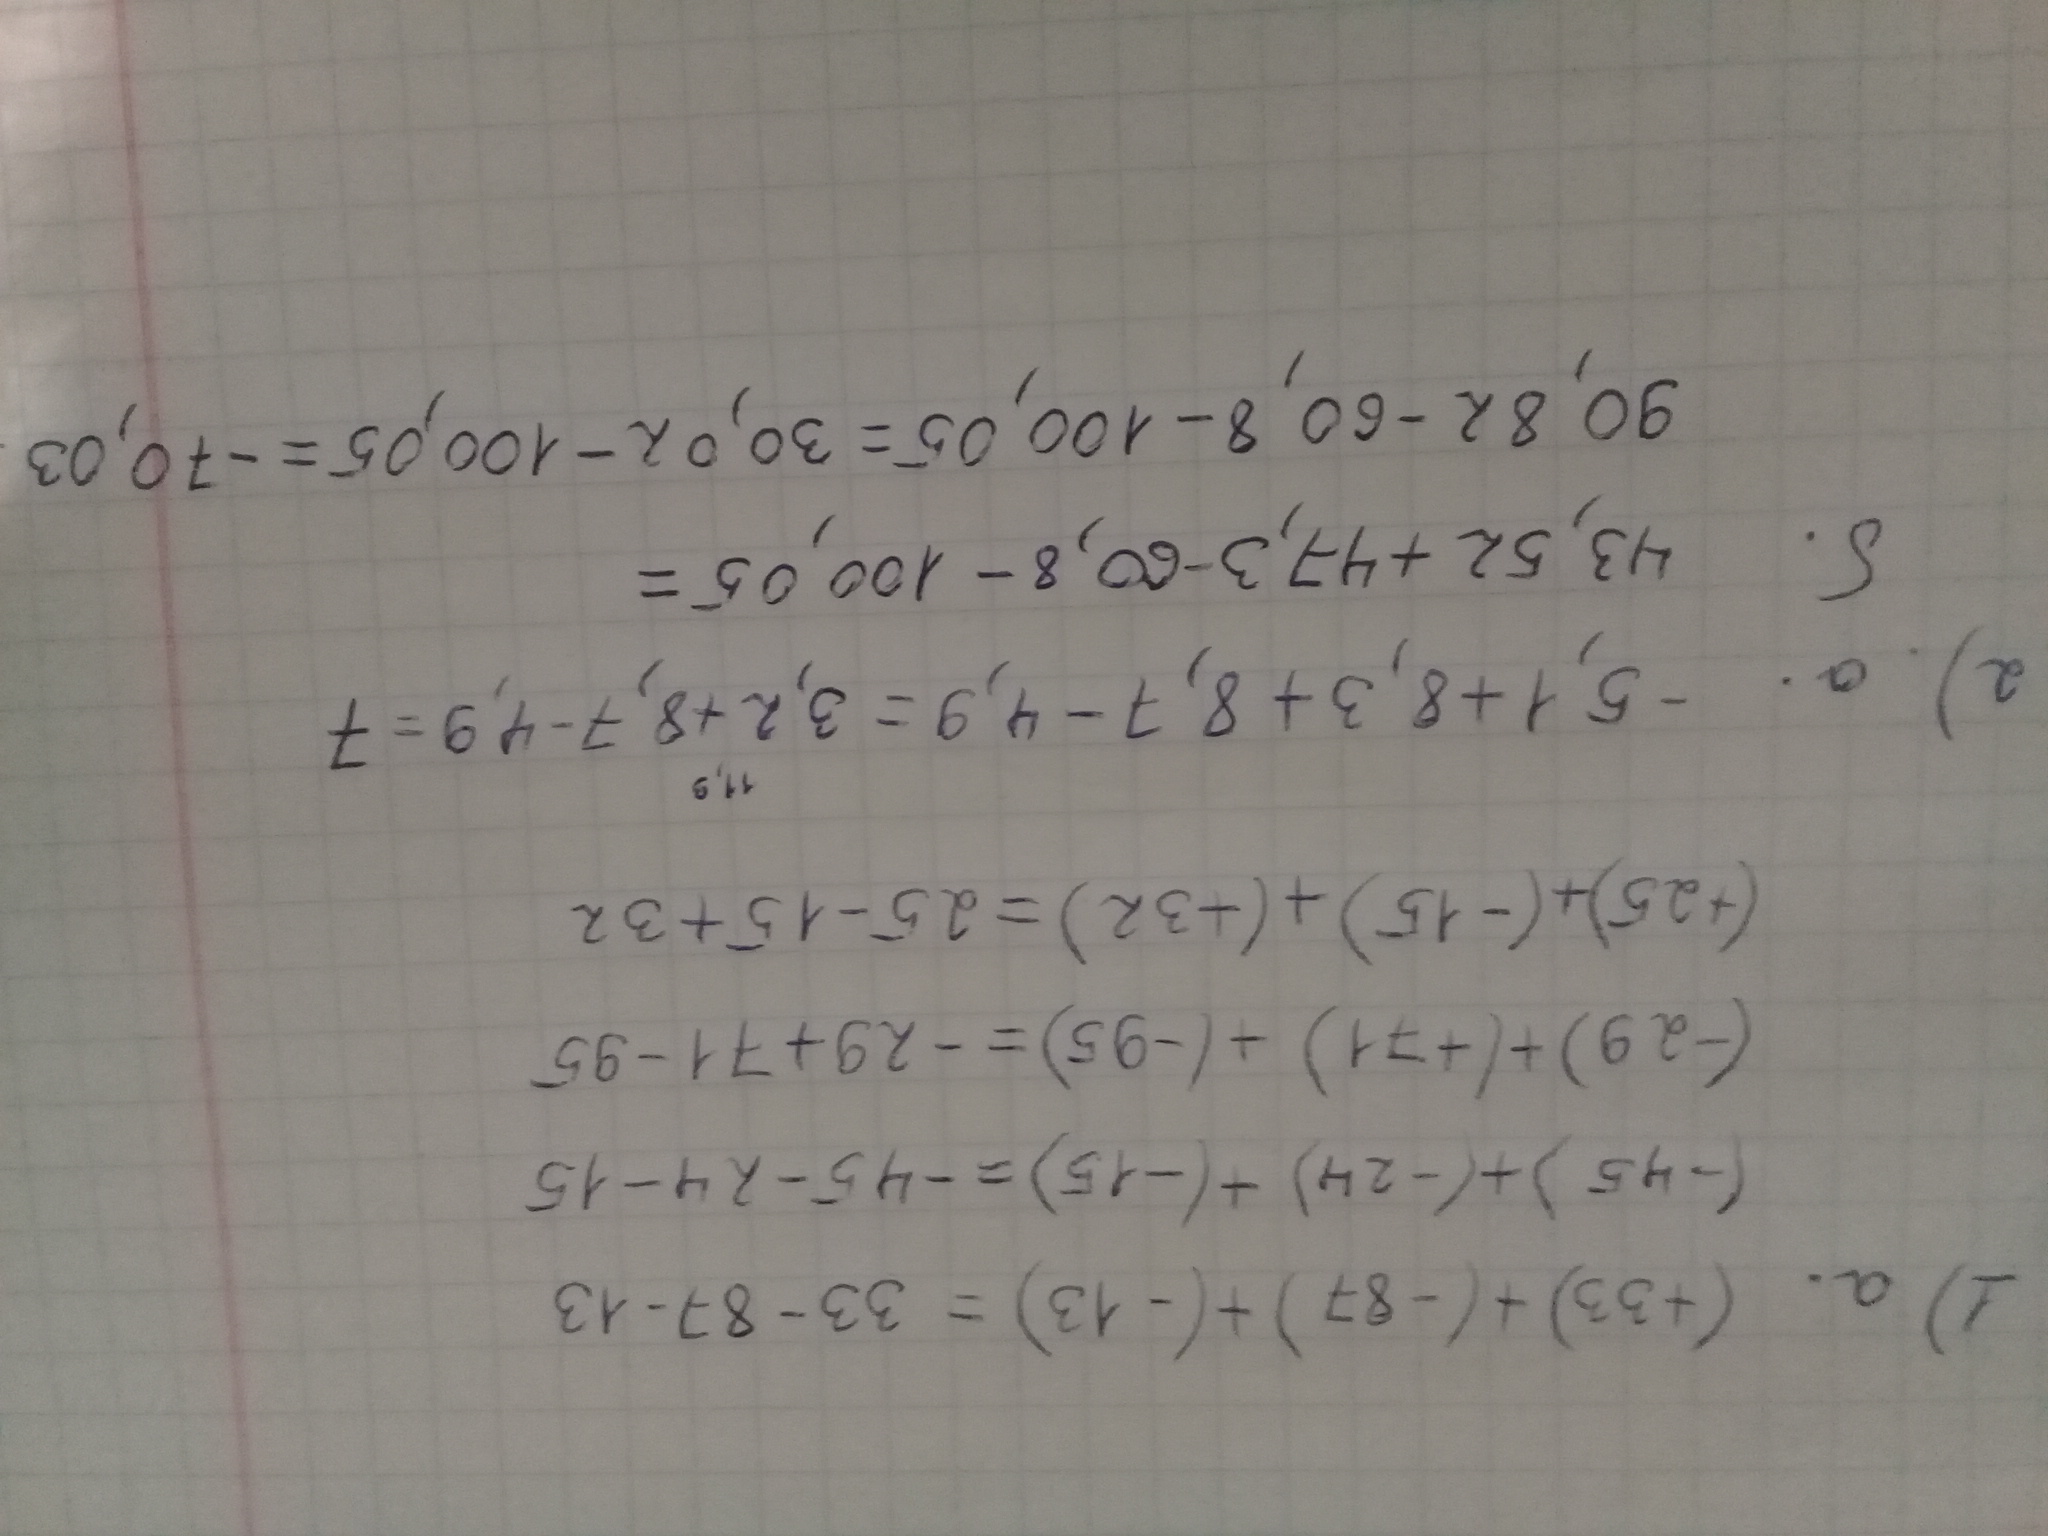 1) а. (+33)+(-87)+(-13) = 33-87-13
(-45)+(-24)+(-15)=-45-24-15
(-29)+(+71)+(-95)=-29+71-95
(+25)+(-15)+(+32)=25-15+32
11,9
2). а. -5,1+8,3+8,7-4,9=3,2+8,7-4,9=7
б. 43,52+47,3-60,8-100,05=
90,82-60,8-100,05=30,02-100,05=-70,03